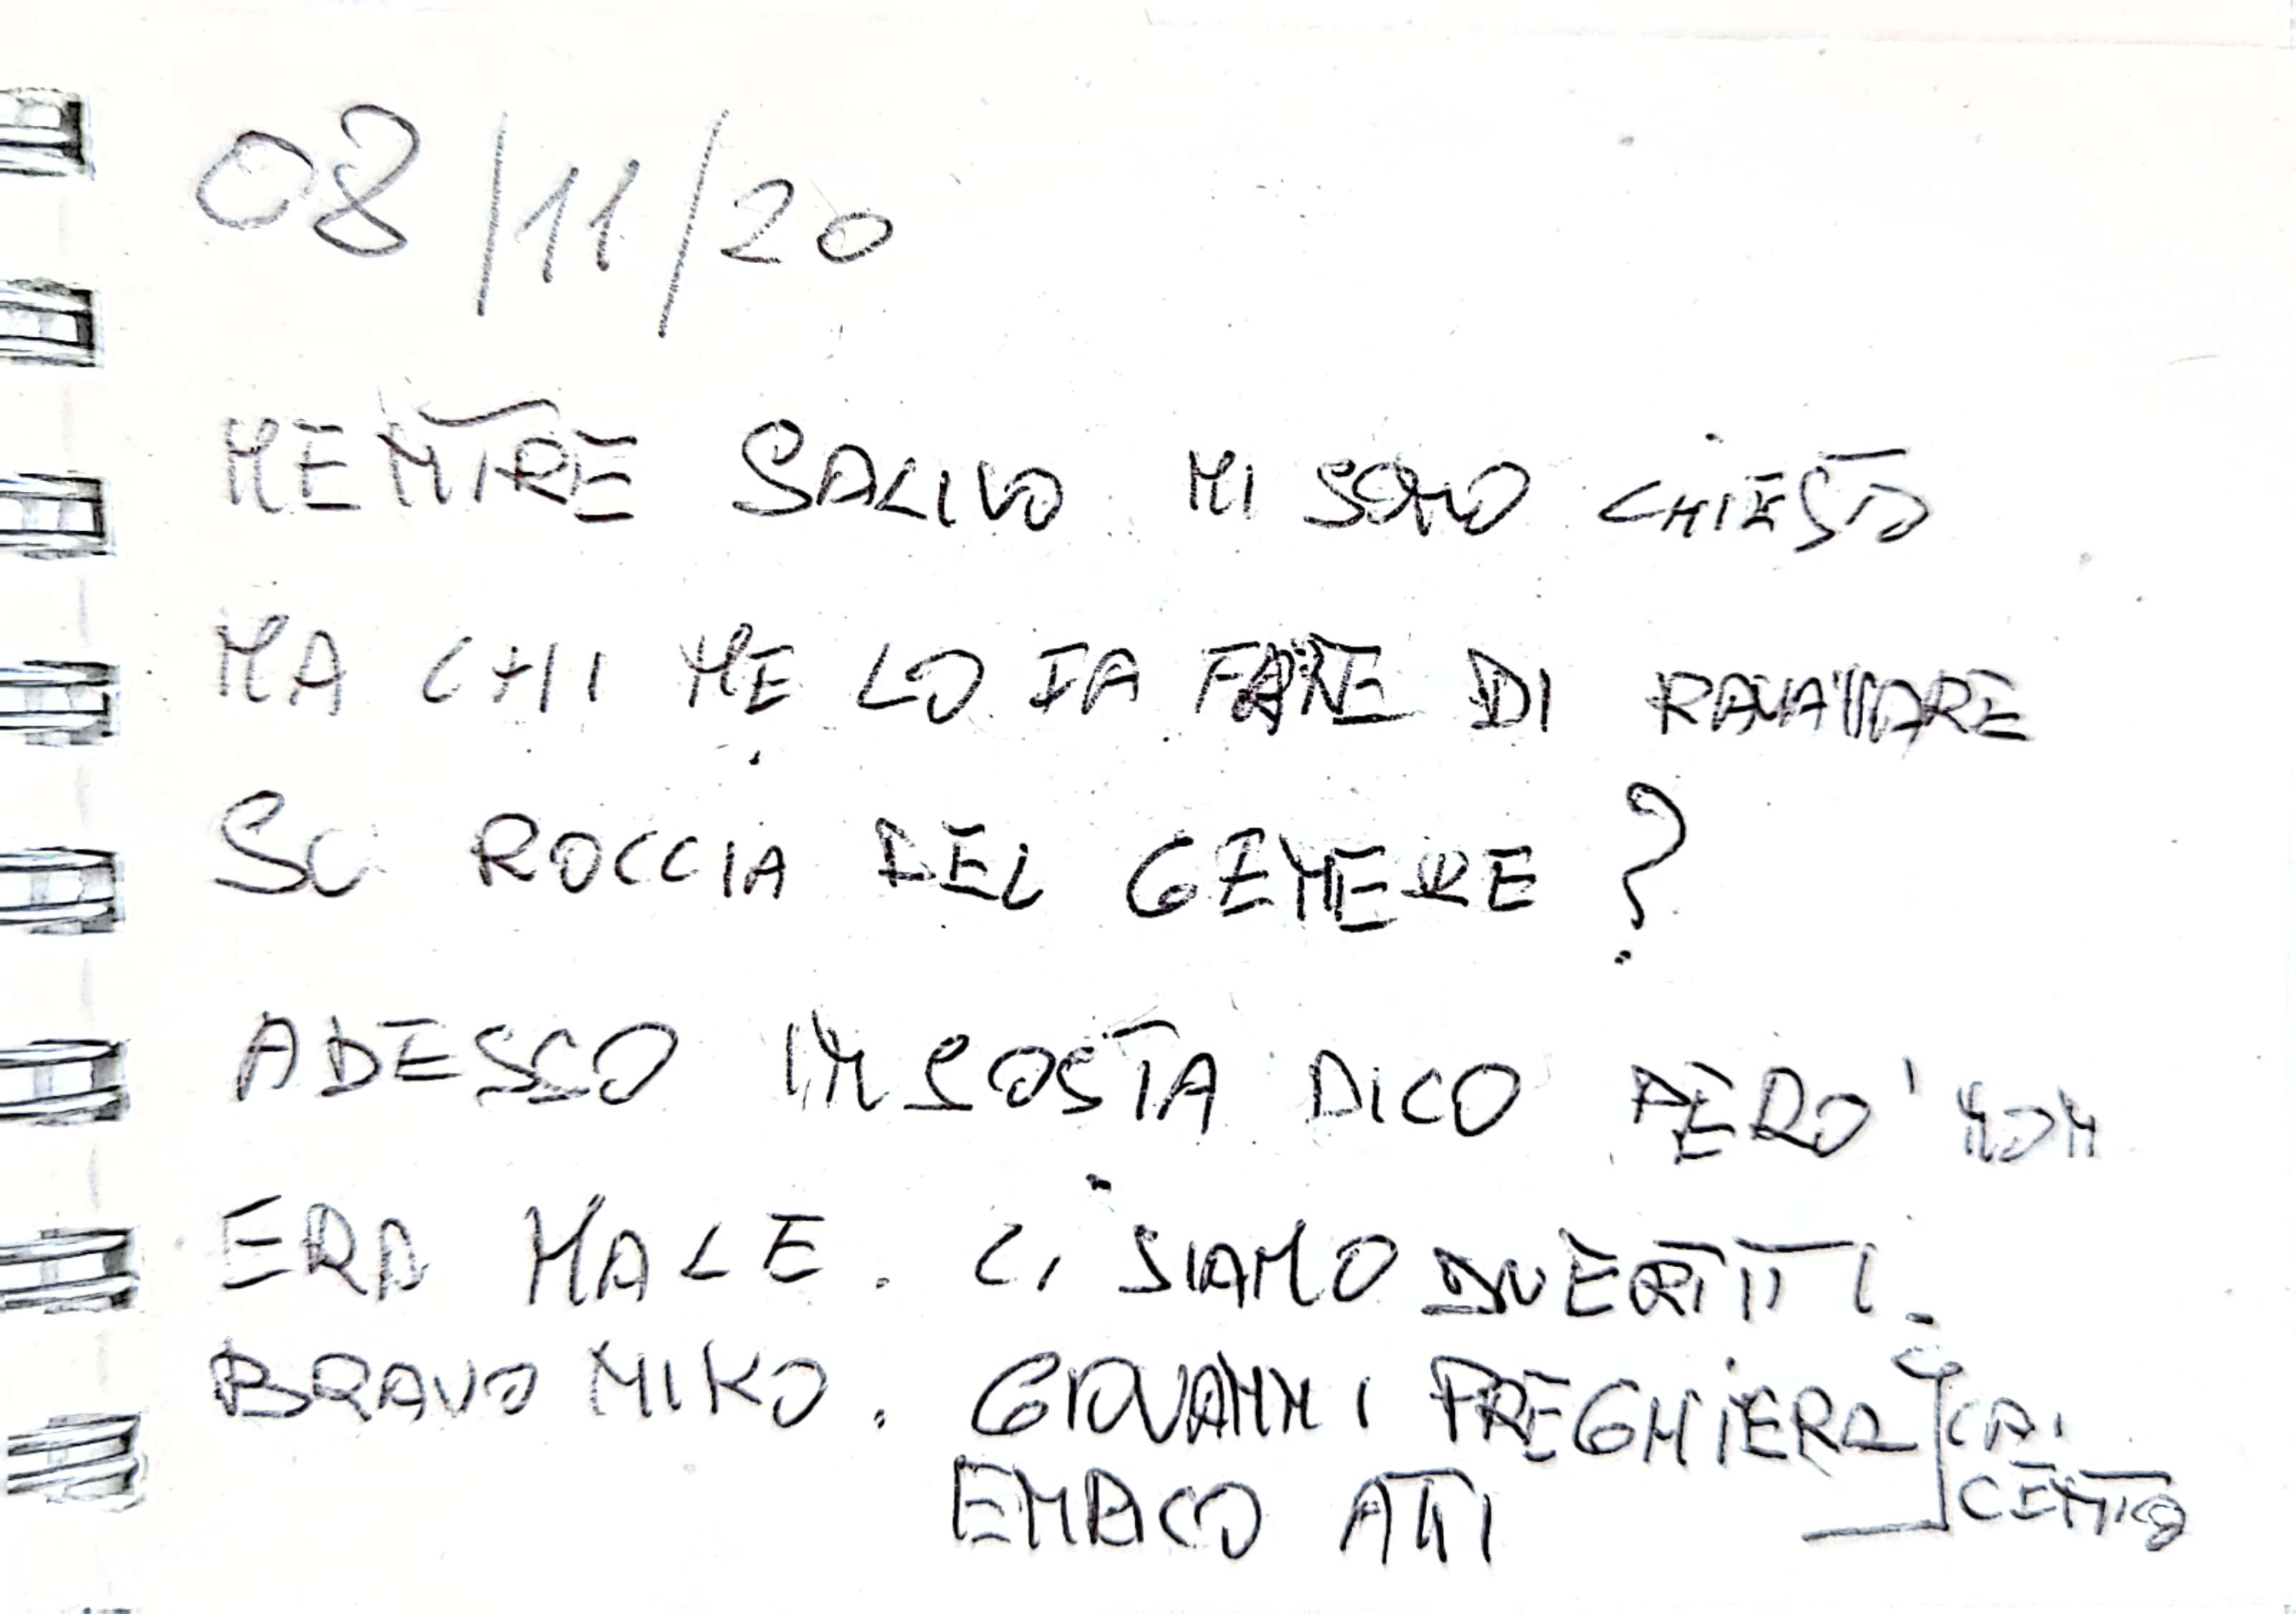 08/11/20
MENTRE SALIVO MI SONO CHIESTO
MA CHI ME LO FA FARE DI RAVANARE
SU ROCCIA DEL GENERE?
ADESSO IN SOSTA DICO PERO' NON
ERA MALE. CI SIAMO DIVERTITI.
BRAVO MIKO. GIOVANNI PREGHIERA CAI
ATTI CENTO